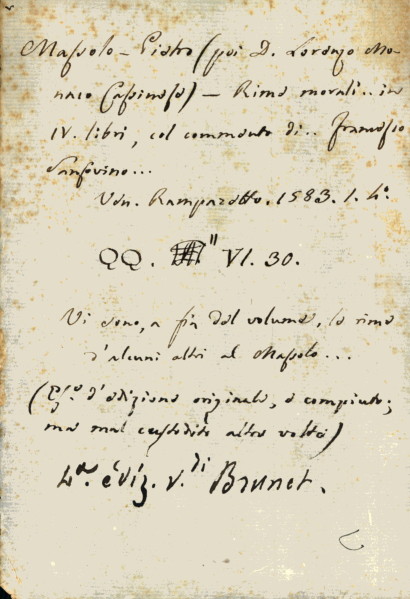 Massolo – Pietro (poi D. Lorenzo Mo-
naco Cassinese) – Rime morali.. in
IV. libri, col commento di.. Francesco
Sansovino...
Ven. Rampazetto. 1583. 1. 4°.
QQ. VI. 30.
Vi sono, a fin del volume, le rime
d'alcuni altri al Massolo...
(Es.º d'edizione originale, e compiuto;
ma mal custodito altre volte)
4ª. ediz. v. di Brunet.